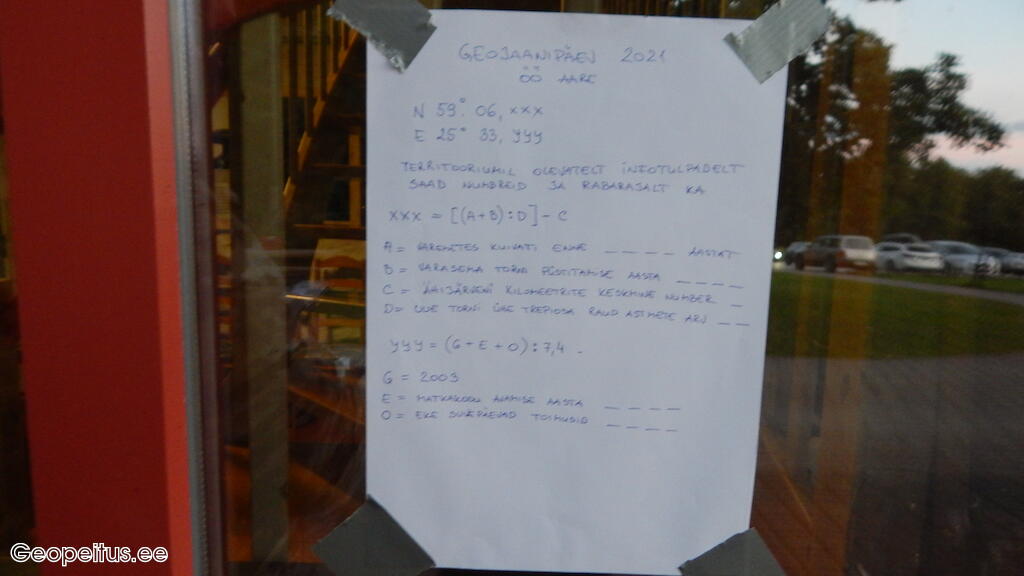 GEOJAANIPÄEV 2021
ÖÖ AARE
N 59° 06, xxx
E 25° 33, yyy
TERRITOORIUMIL OLEVATELT INFOTULPADELT
SAAD NUMBREID JA RABARAJALT KA
xxx = [(A+B):D] - C
A = VAREMETES KUIVATI ENNE _ _ _ _ AASTAT
B = VARASEMA TORNI PÜSTITAMISE AASTA _ _ _ _
C = KILOMEETRITE KESKMINE NUMBER _
D = UUE TORNI ÜHE TREPIOSA RAUD ASTMETE ARV _ _
yyy = (G + E + O) : 7,4 .
G = 2003
E = MATKAKOOLI AVAMISE AASTA _ _ _ _
O = EKE SUVEPÄEVAD TOIMUSID _ _ _ _
Geopeitus.ee